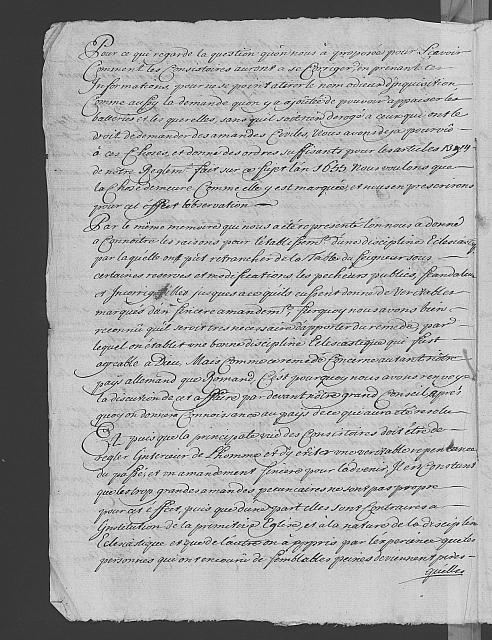 Pour ce qui regarde la question qu'on nous à proposée pour Scavoir
Comment les Consistoires auront a se Corriger, en prenant les
Informations, pour ne se point attirer le nom odieux d'inquisition
Comme aussy la demande qu'on y a ajoutée de pouvoir appaiser les
batteries et les querelles, sans qu'il soit rien derogé a ceux qui ont le
droit de demander des amandes Civiles, Nous avons deja pourvû
à ces Choses, et donné des ordres suffisants pour les articles 13 14
de notre Reglemt. fait sur ce Sujet l'an 1653 Nous voulons que
la Chose demeure Comme elle y est marquée, et nous en prescrivons
pour cet effect l'observation
Par le même memoire qui nous a été representé l'on nous a donné
a Connoitre les raisons pour l'etablissemt. d'une discipline Eclesiastiq
par laquelle on pût retrancher de la Table du Seigneur sous
certaines reserves et modifications les pecheurs publics, scandaleux
et Incorrigibles jusques a ce qu'ils eussent donné de Veritables
marques d'un sincere amandemt. Surquoy nous avons bien
reconnu qu'il seroit tres necessaire d'apporter du remede, par
lequel on établit une bonne discipline Eclesiastique qui fust
agreable a Dieu, Mais Comme ce remede Concerne autant nôtre
pays allemand que Romand, C'est pourquoy nous avons renvoyé
la discution de cet affaire par devant nôtre grand Conseil, Aprés
quoy on donnera Connoissance au pays de ce qui aura été resolu
Et puis que la principale vüe des Consistoires doit être de
regler l'interieur de l'homme et d'y exiter une veritable repentance
du passé, et un amandement sincere pour l'advenir, Il est Constant
que les trop grandes amandes pecuniaires ne sont pas propre
pour cet effect, puis que d'une part elles sont Contraires a
l'institution de la primitive Eglise, et a la nature de la disciplin
Eclesiastique et que de l'autre on à appris par l'experance que les
personnes qui ont encouru de semblables peines deviennent
quelles